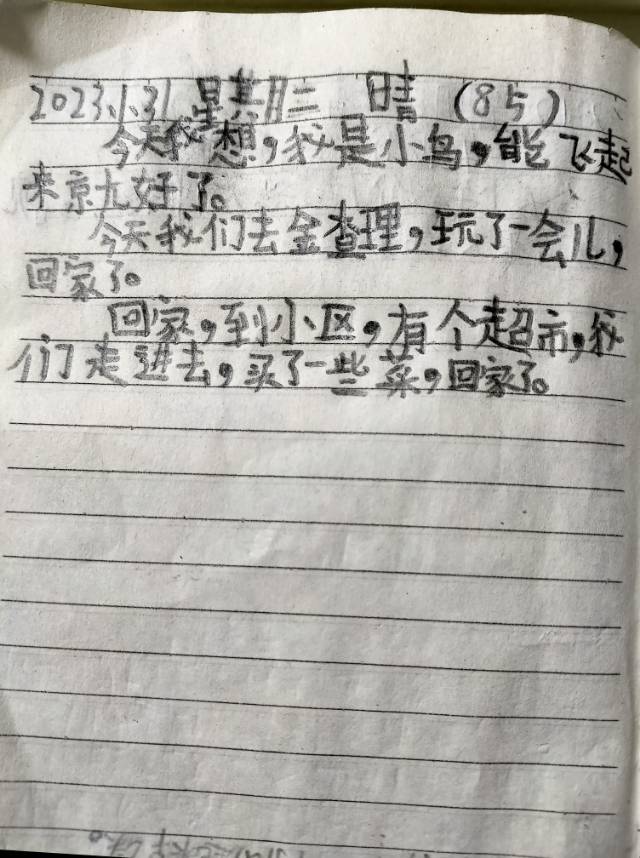 2023.1.31 星期二 晴 (85)
今天我想,我是小鸟,能飞起
来京尤好了。
今天我们去金查理,玩了一会儿,
回家了。
回家,到小区,有个超市,我
们走进去,买了一些菜,回家了。